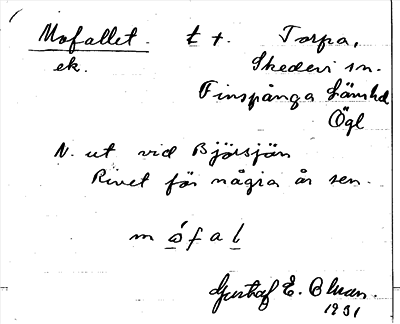 Mofallet. t t. Torpa,
ek. Skedevi sn.
Finspånga länshd
Ögl
N. ut vid Björsjön
Rivet för några år sen.
m ó f a l
Gustaf E. Bluan.
1931